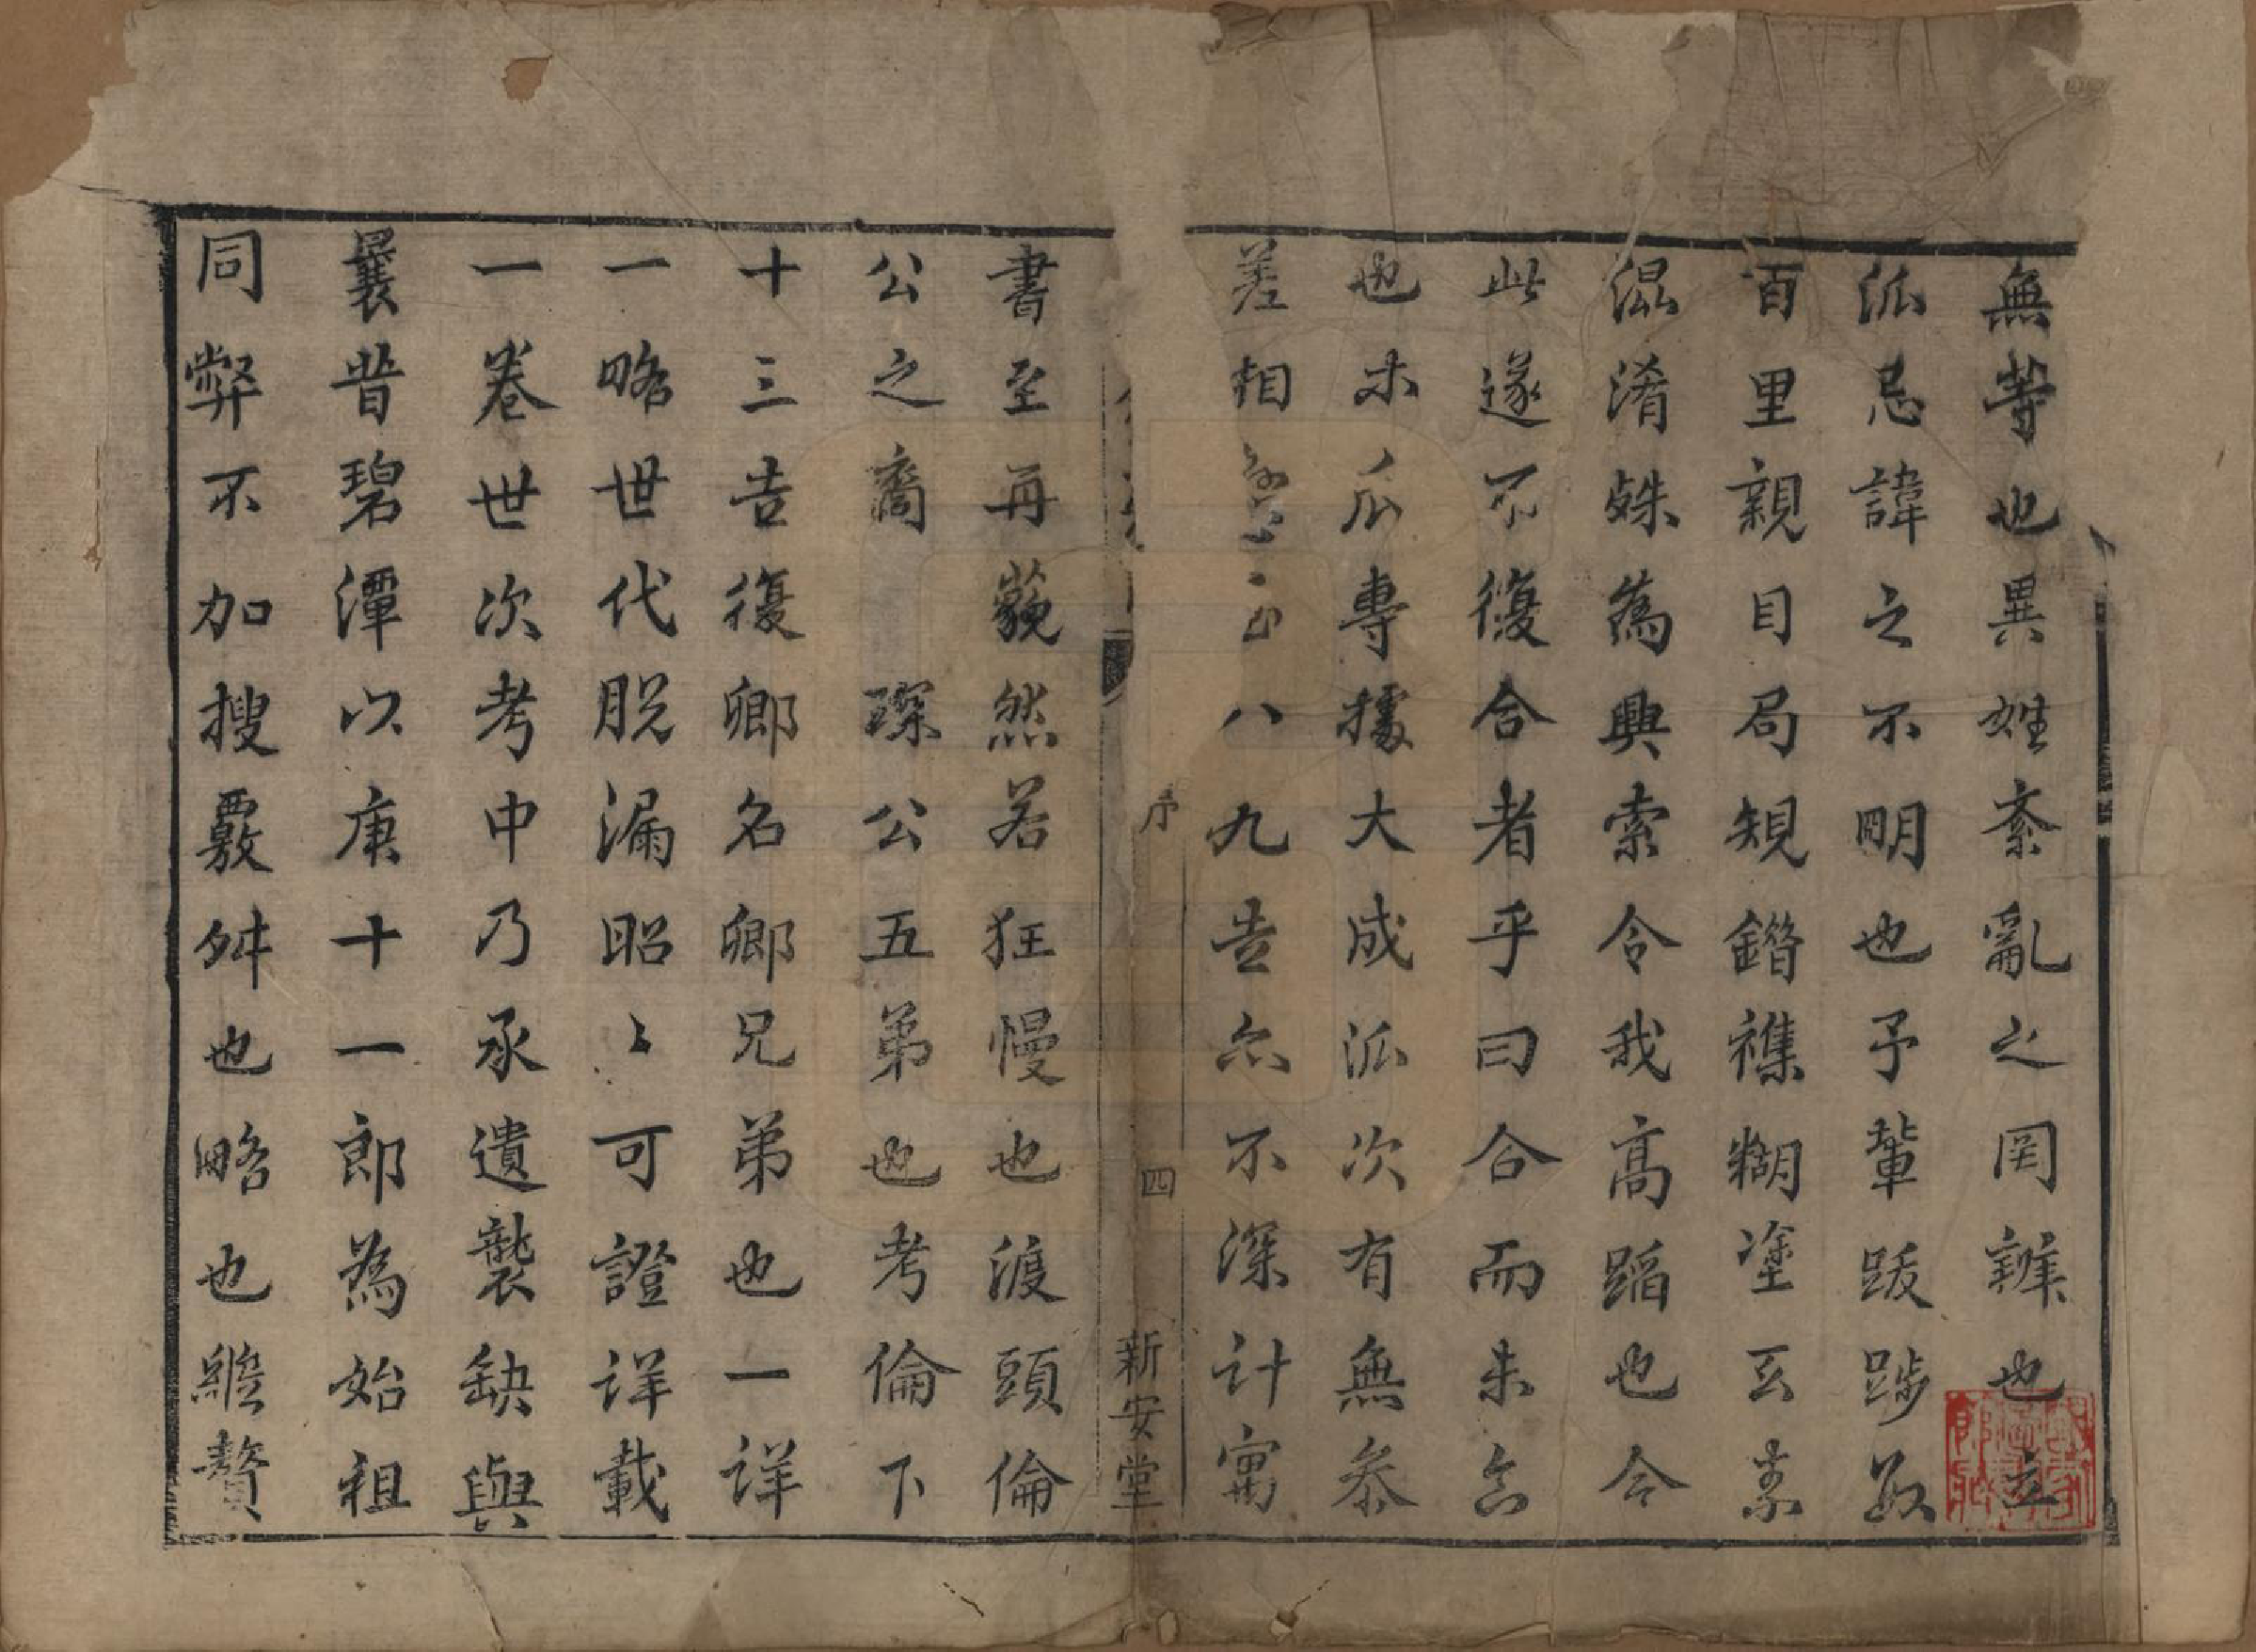 無等也異姓紊亂之罔辨也立
派忌諱之不明也予輩跋踄數
百里親目局規鍇襍糊塗玄素
混淆殊為興索令我高蹈也令
此遂不復合者乎曰合而未合
也朱瓜專據大成派次有無叅
差相八九告亦不深計寓
序
四
新安堂
書至再藐然若狂慢也渡頭倫
公之裔 琛公五弟也考倫下
十三吉復卿名卿兄弟也一詳
一略世代脱漏昭〻可證詳載
一卷世次考中乃承遺襲缺與
曩昔碧潭以庚十一郎為始祖
同弊不加搜覈舛也略也縱贅